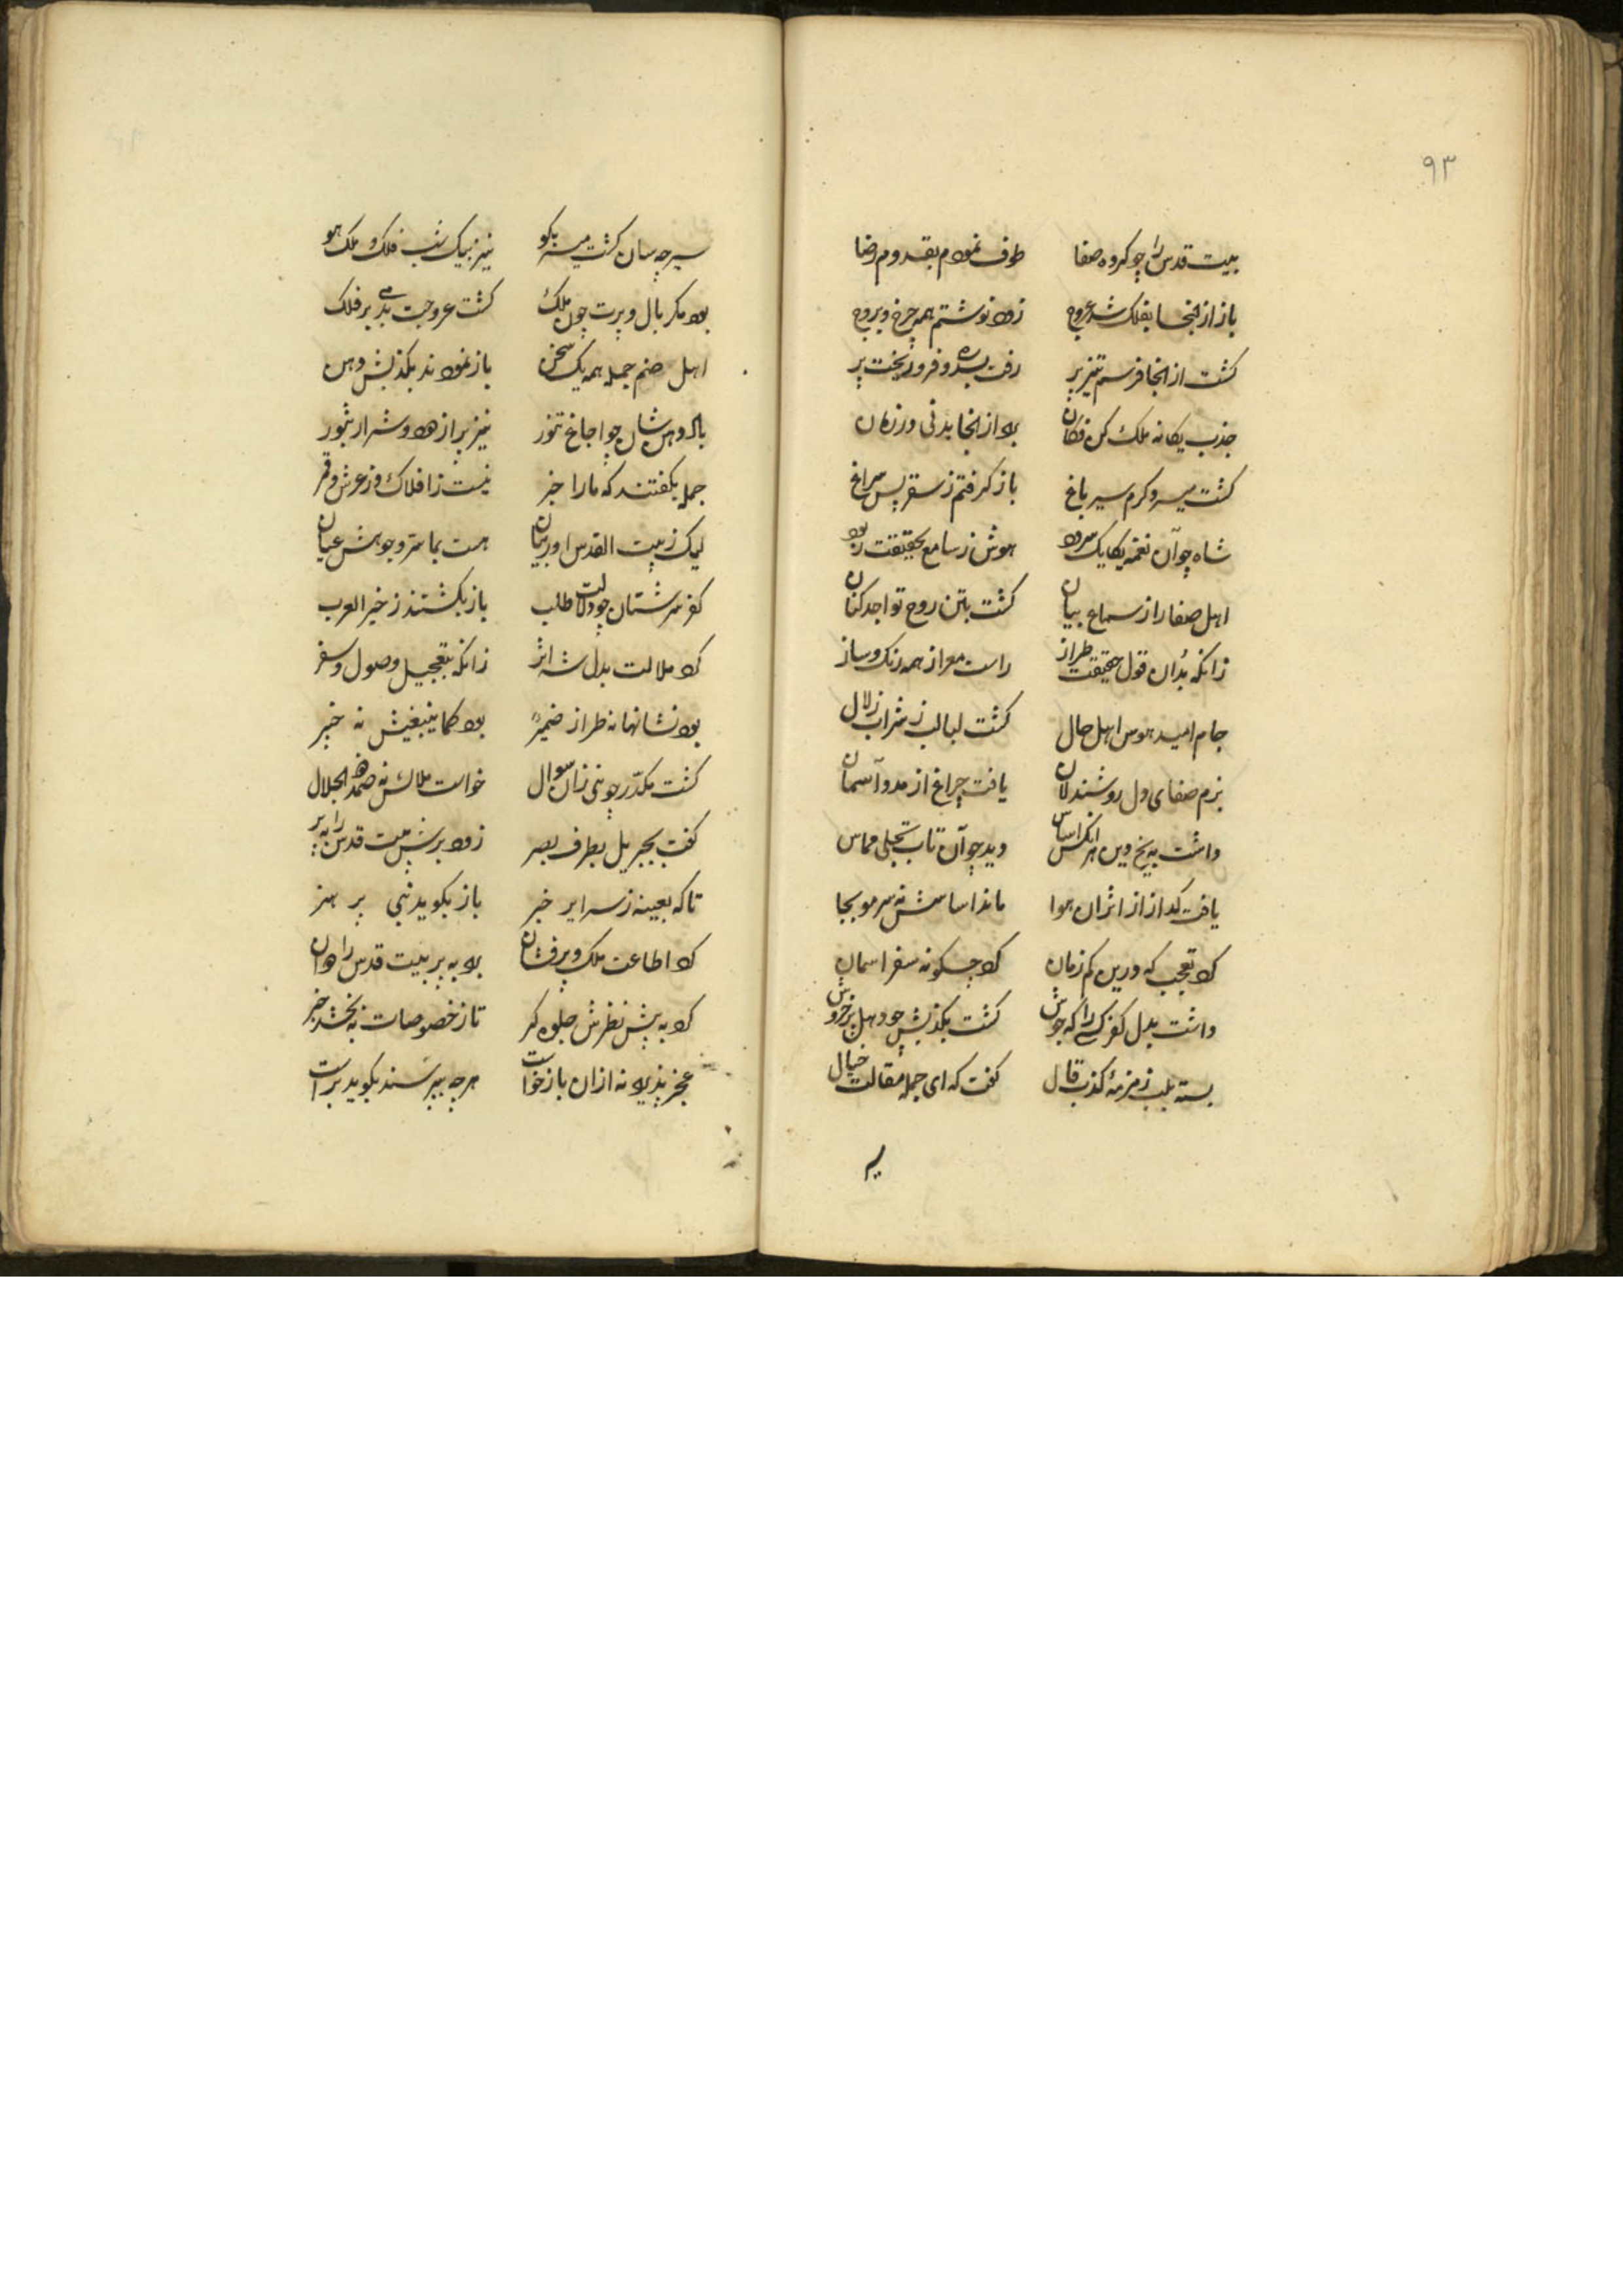 ۹۳
بیت قدس را چو کروه صفا طوف نمودم بقدوم رضا
باز از انجا بفلک شد عروج زود نوشتم همه چرخ و بروج
کشت از انجا فرسم تیزپر رفت بسدره و فرو ریخت پر
جذب یکانه ملک کن فکان برد از انجا بدنی در زمان
کشت میسر و کرم سیر باغ باز کرفتم ز سفر پس سراغ
شاه چو آن نغمه یکایک سرود هوش ز سامع بحقیقت ربود
اهل صفا را ز سماع بیان کشت بتن روح تواجد کنان
زانکه بدان قول حقیقت طراز راست معرا ز همه رنک و ساز
جام امید هوس اهل حال کشت لبالب ز شراب زلال
بزم صفای دل روشندلان یافت چراغ از مدد آسمان
داشت به یخ دین هر انکس اساس دید چو آن تاب تجلی مماس
یافت کداز از اثر ان هوا ماند اساسش نه سر مو بجا
کرد تعجب که درین کم زمان کرد چسکونه سفر اسمان
داشت بدل کفر کسی را که جوش کشت بکذبش چو دهل پر خروش
بسته بلب زمزمهٔ کذب قال کفت که ای جمله مقالت خیال
سیر
سیر چه سان کشت میسر بکو نیز بیک شب فلک و ملک هو
بود مکر بال و پرت چون ملک کشت عروجت بدمی بر فلک
اهل صنم جمله همه یک سخن باز نمودند بکذبش دهن
باد دهن شان چو اجاغ تنور نیز پر از دود و شرار بثور
جمله بکفتند که ما را خبر نیست ز افلاک و ز عرش و قمر
لیک ز بیت القدس اور بیان هست بما ستر و جوهش عیان
کفر سرشتان چو دلالت طلب باز بکشتند ز خیر العرب
کرد ملالت بدل شه اثر زانکه بتعجیل وصول و سفر
بود نشانها نه طراز ضمیر بود کما ینبغیش نه خبیر
کشت مکدر چو نبی زان سوال خواست ملالش نه صمد ذو الجلال
کفت بجبریل بطرف بصر زود برش بیت قدس را ببر
تا که بعینه ز سرایر خبر باز بکوید نبی پر هنر
کرد اطاعت ملک و پرفشان برد به پر بیت قدس را دوان
کرد به پیش نظرش جلوه کر تا ز خصوصات به بخشد خبر
عجز پذیرد نه ازان بازخواست هرچه بپرسند بکوید براست